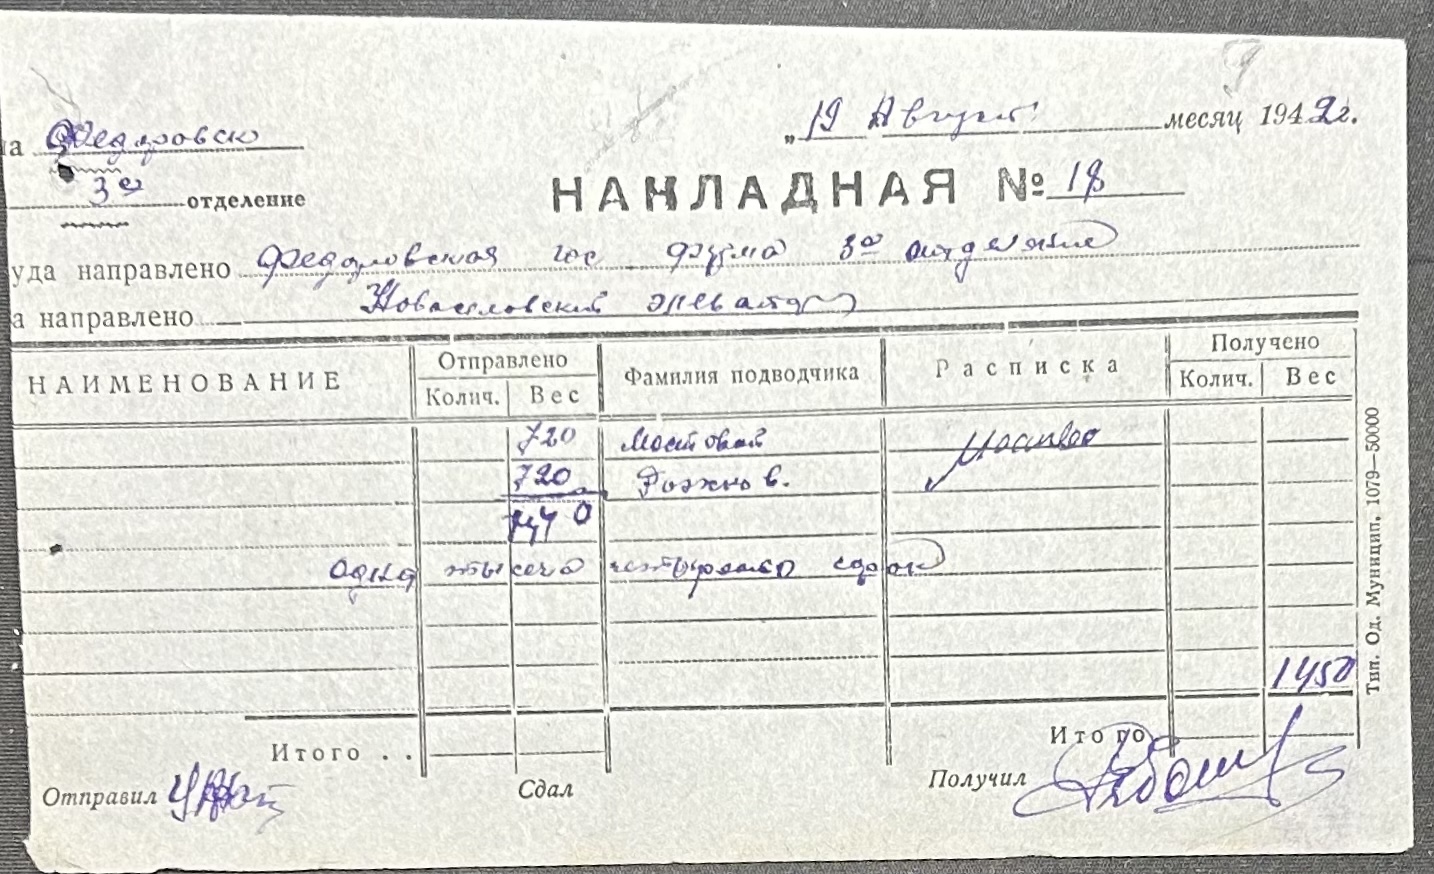 а Федоровск
3е отделение
„ 19 Август месяц 1942г.
НАКЛАДНАЯ № 18
уда направлено Федоровская гос ферма 3го отделение
а направлено Новоселовский элеватор
НАИМЕНОВАНИЕ Отправлено Фамилия подводчика Расписка Получено
Колич. Вес Колич. Вес
720 Мостовой
720 Рожнов.
1440
одна тысеча четыреста сорок
1450
Итого . . Итого
Отправил Сдал Получил
Тип. Од. Муницип. 1079—50000